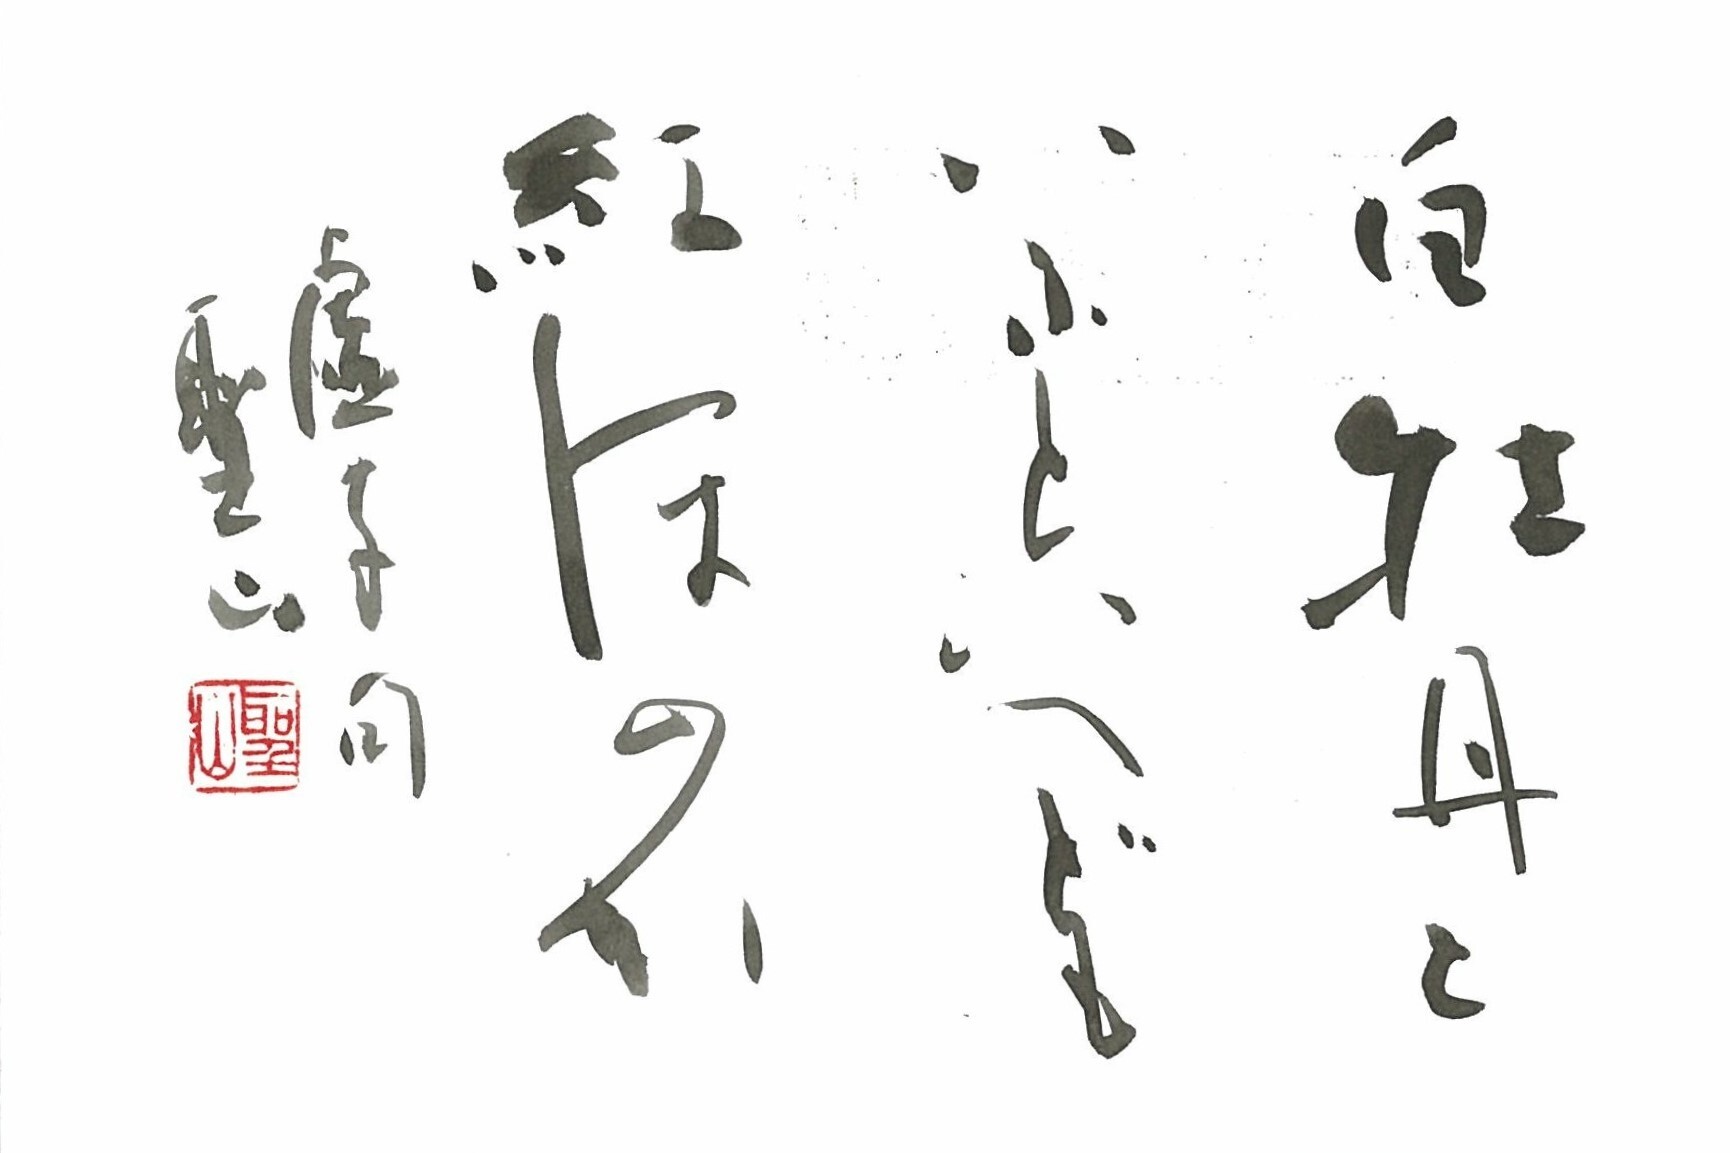 白牡丹と
いふといへども
紅ほのか
虚子句
聖山
聖山